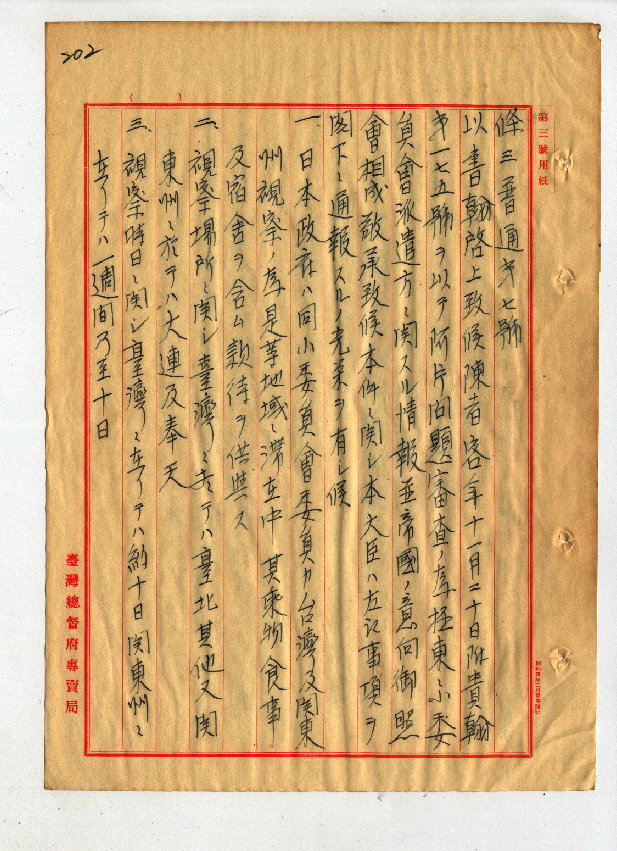 202
第三號用紙
條三普通第七號
以書翰啓上致候陳者客年十一月二十日附貴翰
第一七五號ヲ以テ阿片問題審査ノ為極東ニ小委
員會派遣方ニ関スル情報並帝國ノ意向御照
會相成敬承致候本件ニ関シ本大臣ハ左記事項ヲ
閣下ニ通報スルノ光栄ヲ有シ候
一、日本政府ハ同小委員會委員カ台灣及関東
州視察ノ為是等地域ニ滞在中其乘物食事
及宿舍ヲ含ム款待ヲ供與ス
二、視察場所ニ関シ臺灣ニ在リテハ臺北其他又関
東州ニ於テハ大連及奉天
三、視察時日ニ関シ臺灣ニ在リテハ約十日関東州ニ
在リテハ一週間乃至十日
臺灣總督府專賣局